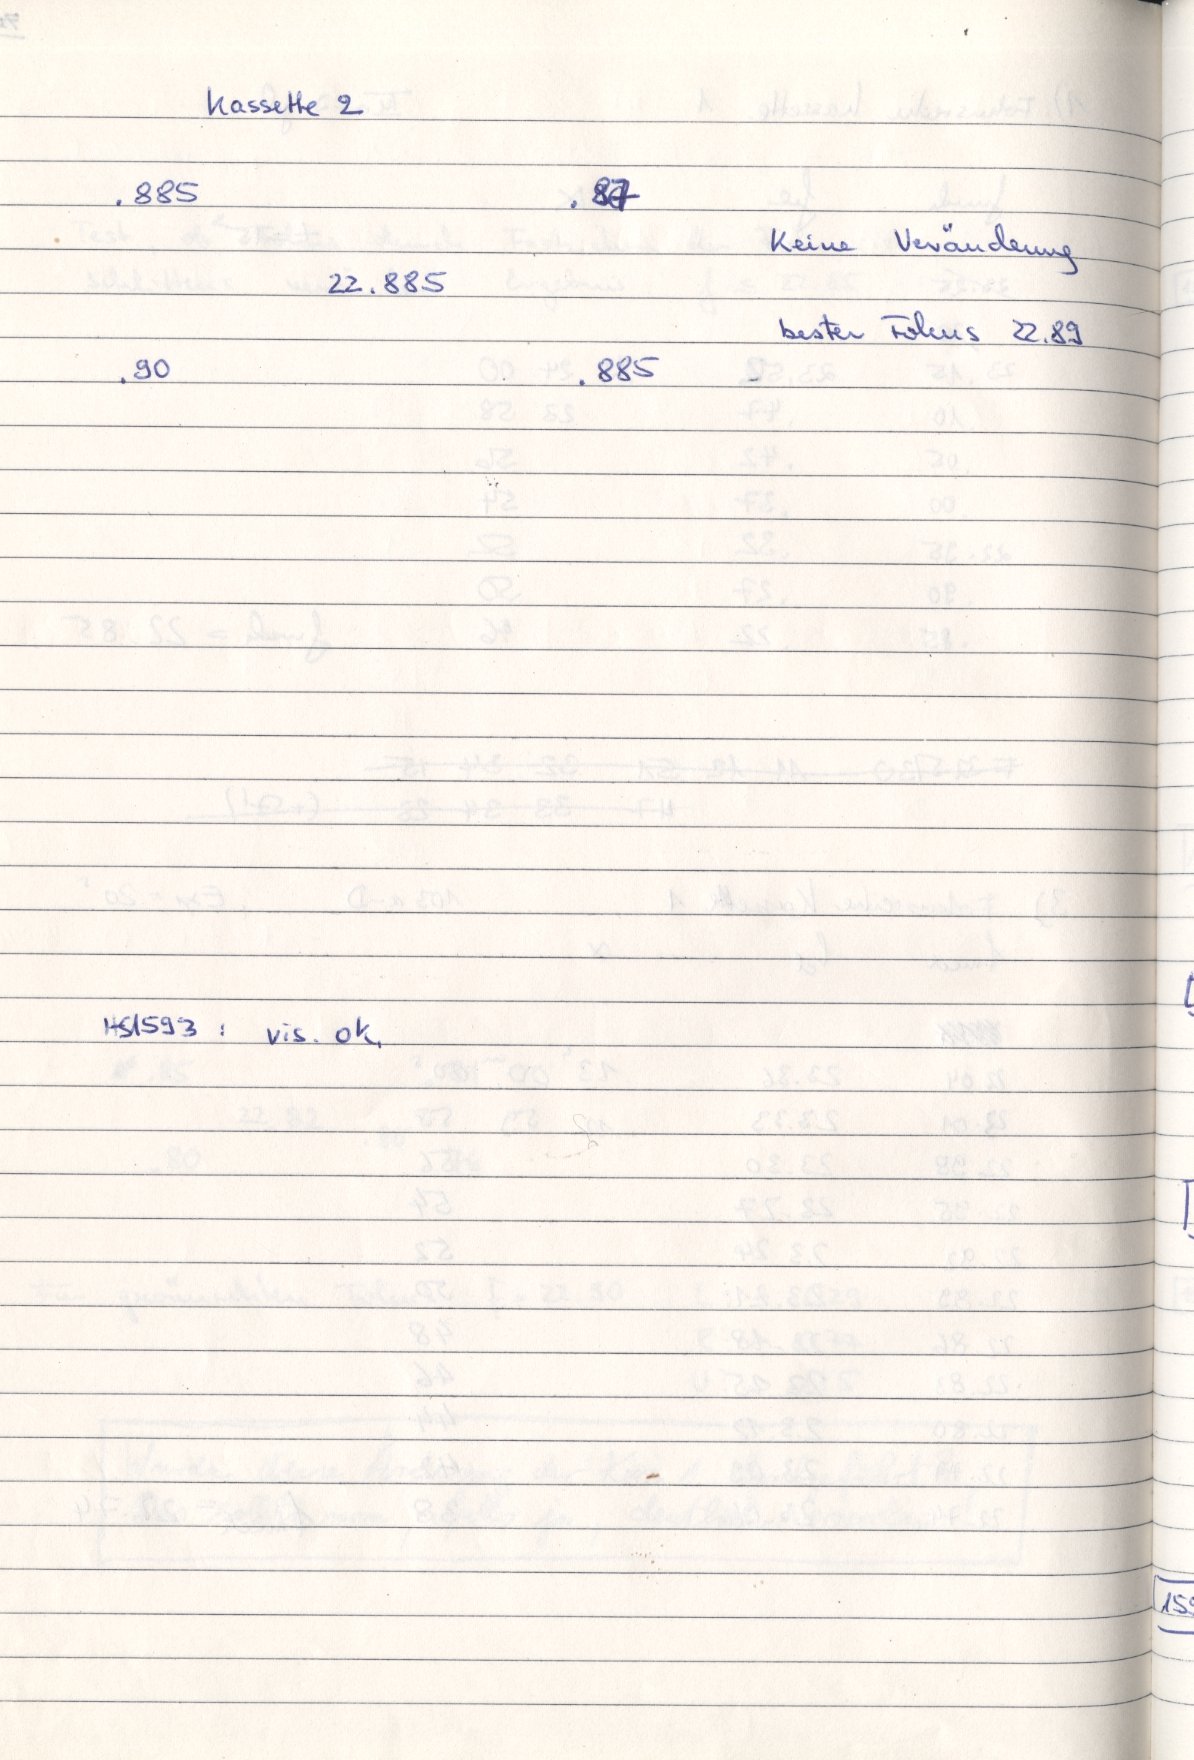 Kassette 2
.885 .87
Keine Veränderung
22.885
bester Fokus 22.89
.90 .885
HS1593 : vis. ok.